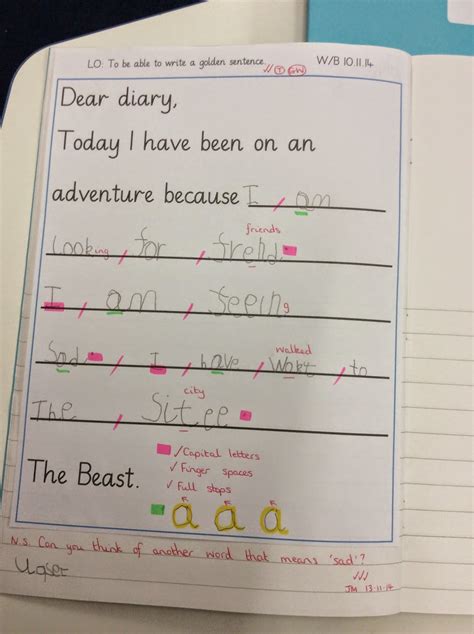 LO: To be able to write a golden sentence. W/B 10.11.14
✓✓ T GW
Dear diary,
Today I have been on an
adventure because I / am
friends
looking / for / frend.
I / am / seeing
walked
Sad. / I / have / Wokt / to
city
The / Sitee.
✓ Capital letters
✓ Finger spaces
✓ Full stops
The Beast.
a a a
N.S. Can you think of another word that means 'sad'?
Uqset
✓✓✓
JM 13.11.14